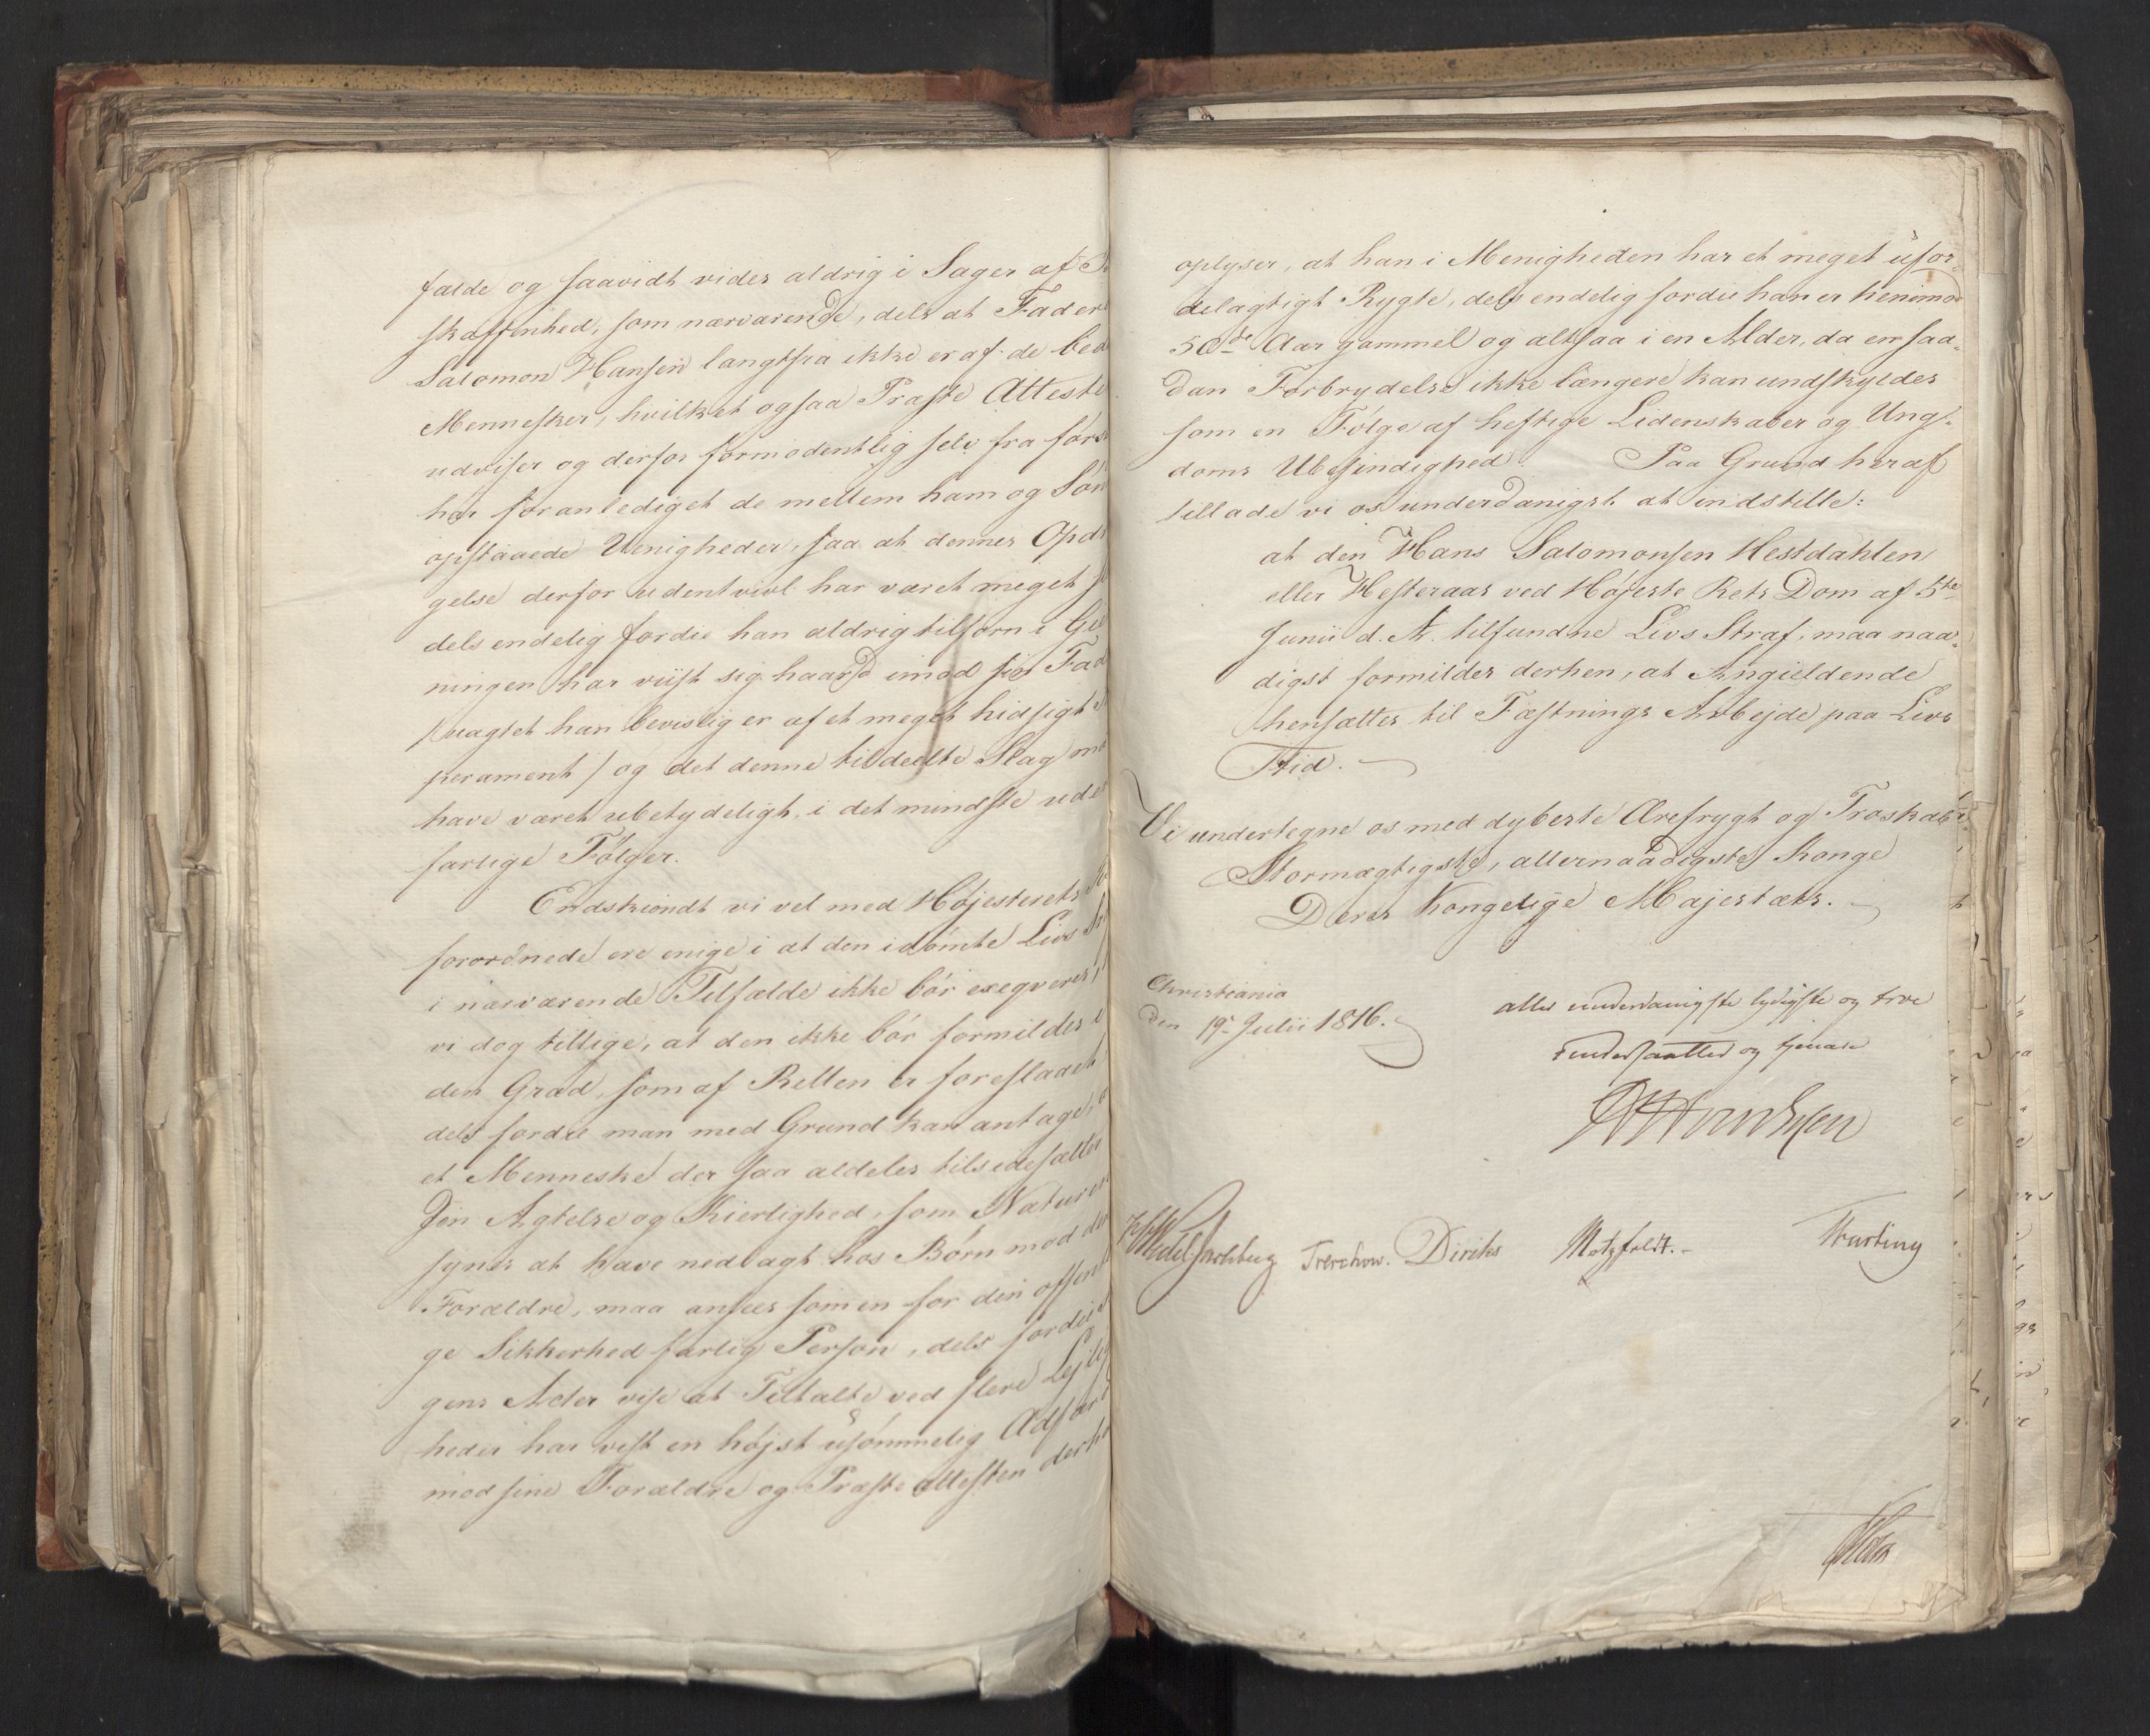 falde og saavidt vides aldrig i Sager af
skaffenhed, som nærværende, dels at Faderen
Salomon Hansen langtfra ikke er af de bed
Mennesker, hvilket ogsaa Præste Atteste
udviser og derfor formodentlig selv fra først
har foranlediget de mellem ham og Søn
opstaaede Uenigheder, saa at dennes Opdr
gelse derfor udentvivl har været meget
dels endelig fordie han aldrig tilforn i Giè
ningen har viist sig haard imod sin Fad
/uagtet han bevislig er af et meget hidsigt
perament/ og det denne tildeelte Slag
have været ubetydeligt, i det mindste uden
farlige Følger.
Endskiöndt vi vel med Højesterets
forordnede ere enige i at den idømte Livs
i nærværende Tilfælde ikke bör exeqveres
vi dog tillige, at den ikke bör formildes i
den Grad, som af Retten er foreslaaet
dels fordie man med Grund kan antage,
et Menneske der saa aldeles tilsidesætter
den Agtelse og Kierlighed, som Naturen
synes at have nedlagt hos Børn mod
Forældre, maa ansees som en for den offent
ge Sikkerhed farlig Person, dels fordie
gens Acter vise at Tiltalte ved flere Lejlig
heder har vist en højst usömmelig Adfærd
mod sine Forældre og Præste attesten
oplyser, at han i Menigheden har et meget ufor-
delagtigt Rygte, dels endelig fordie han er henimod
50de Aar gammel og altsaa i en Alder, da en saa-
dan Forbrydelse ikke længere kan undskyldes
som en Følge af heftige Lidenskaber og Ung-
doms Ubesindighed. Paa Grund heraf
tillade vi os underdanigst at indstille:
at den Hans Salomonsen Hestdahlen
eller Hesteraas ved Højeste Rets Dom af 5te
Junii d. A. tilfundne Livs Straf, maa naa-
digst formildes derhen, at Angieldende
hensættes til Fæstnings Arbejde paa Livs
Tid.
Vi undertegne os med dybeste Ærefrygt og Troskab
Stormægtigste, allernaadigste Konge
Deres Kongelige Majestæts.
Christiania
den 19de Julii 1816.
aller underdanigste lydigste og troe
undersaatter og tjenere
Wedel Jarlsberg Treschow. Diriks Motzfeldt.